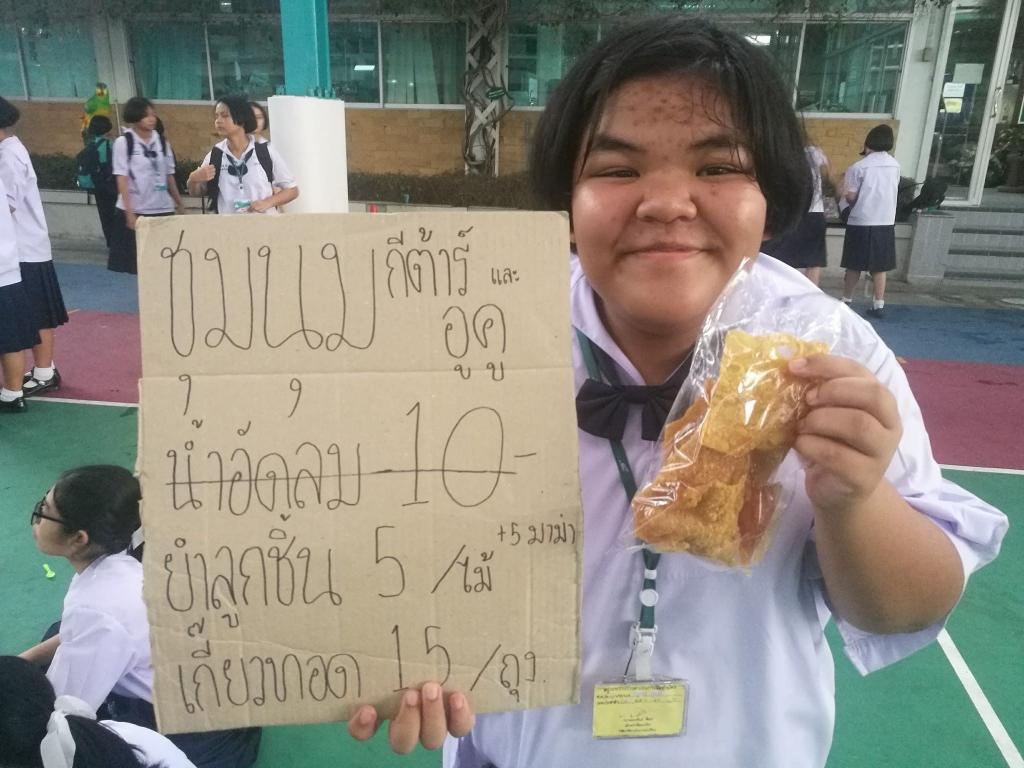 ชุมนุม กีต้าร์ และ
อูคู
น้ำอัดลม 10-
ยำลูกชิ้น 5 /ไม้ +5 มาม่า
เกี๊ยวทอด 15 /ถุง.